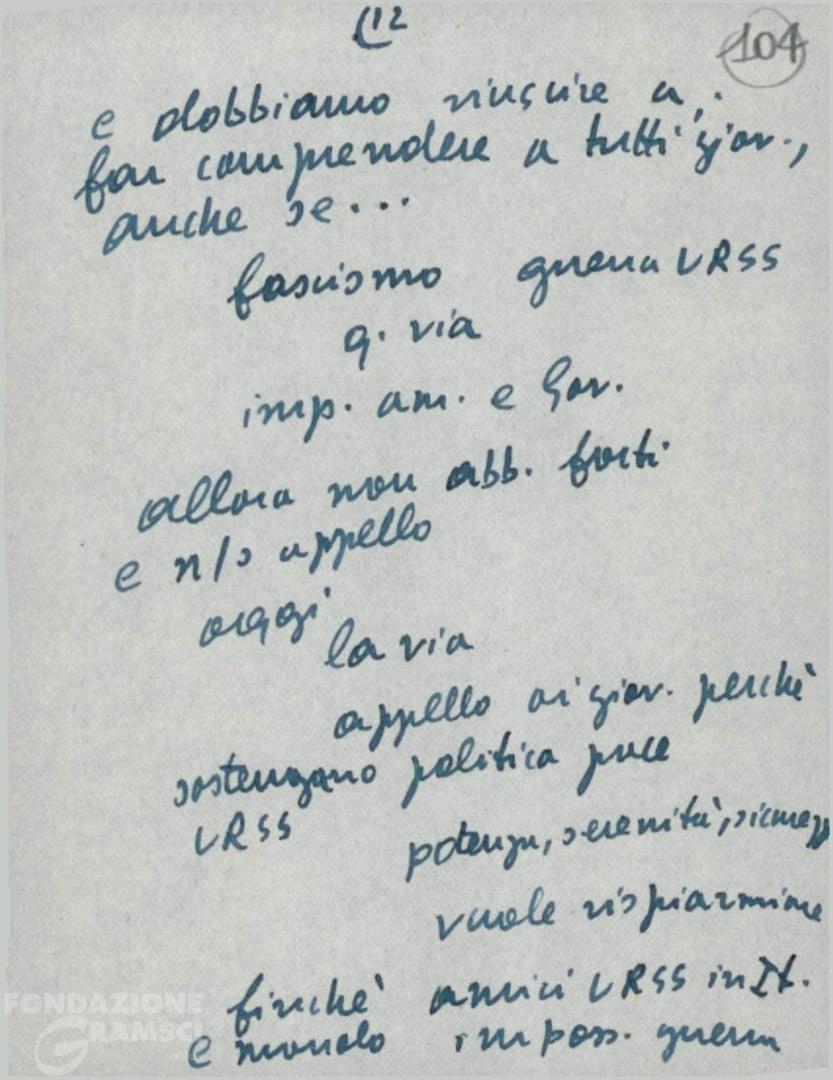 (12
104
e dobbiamo riuscire a
far comprendere a tutti i giov.,
anche se...
fascismo guerra URSS
q. via
imp. am. e Gov.
allora non abb. forti
e n/s appello
oggi
la via
appello ai giov. perchè
sostengano politica pace
URSS
potenza, serenità, sicurezz
vuole risparmiare
finchè amici URSS in It.
e mondo imposs. guerra
FONDAZIONE
GRAMSCI